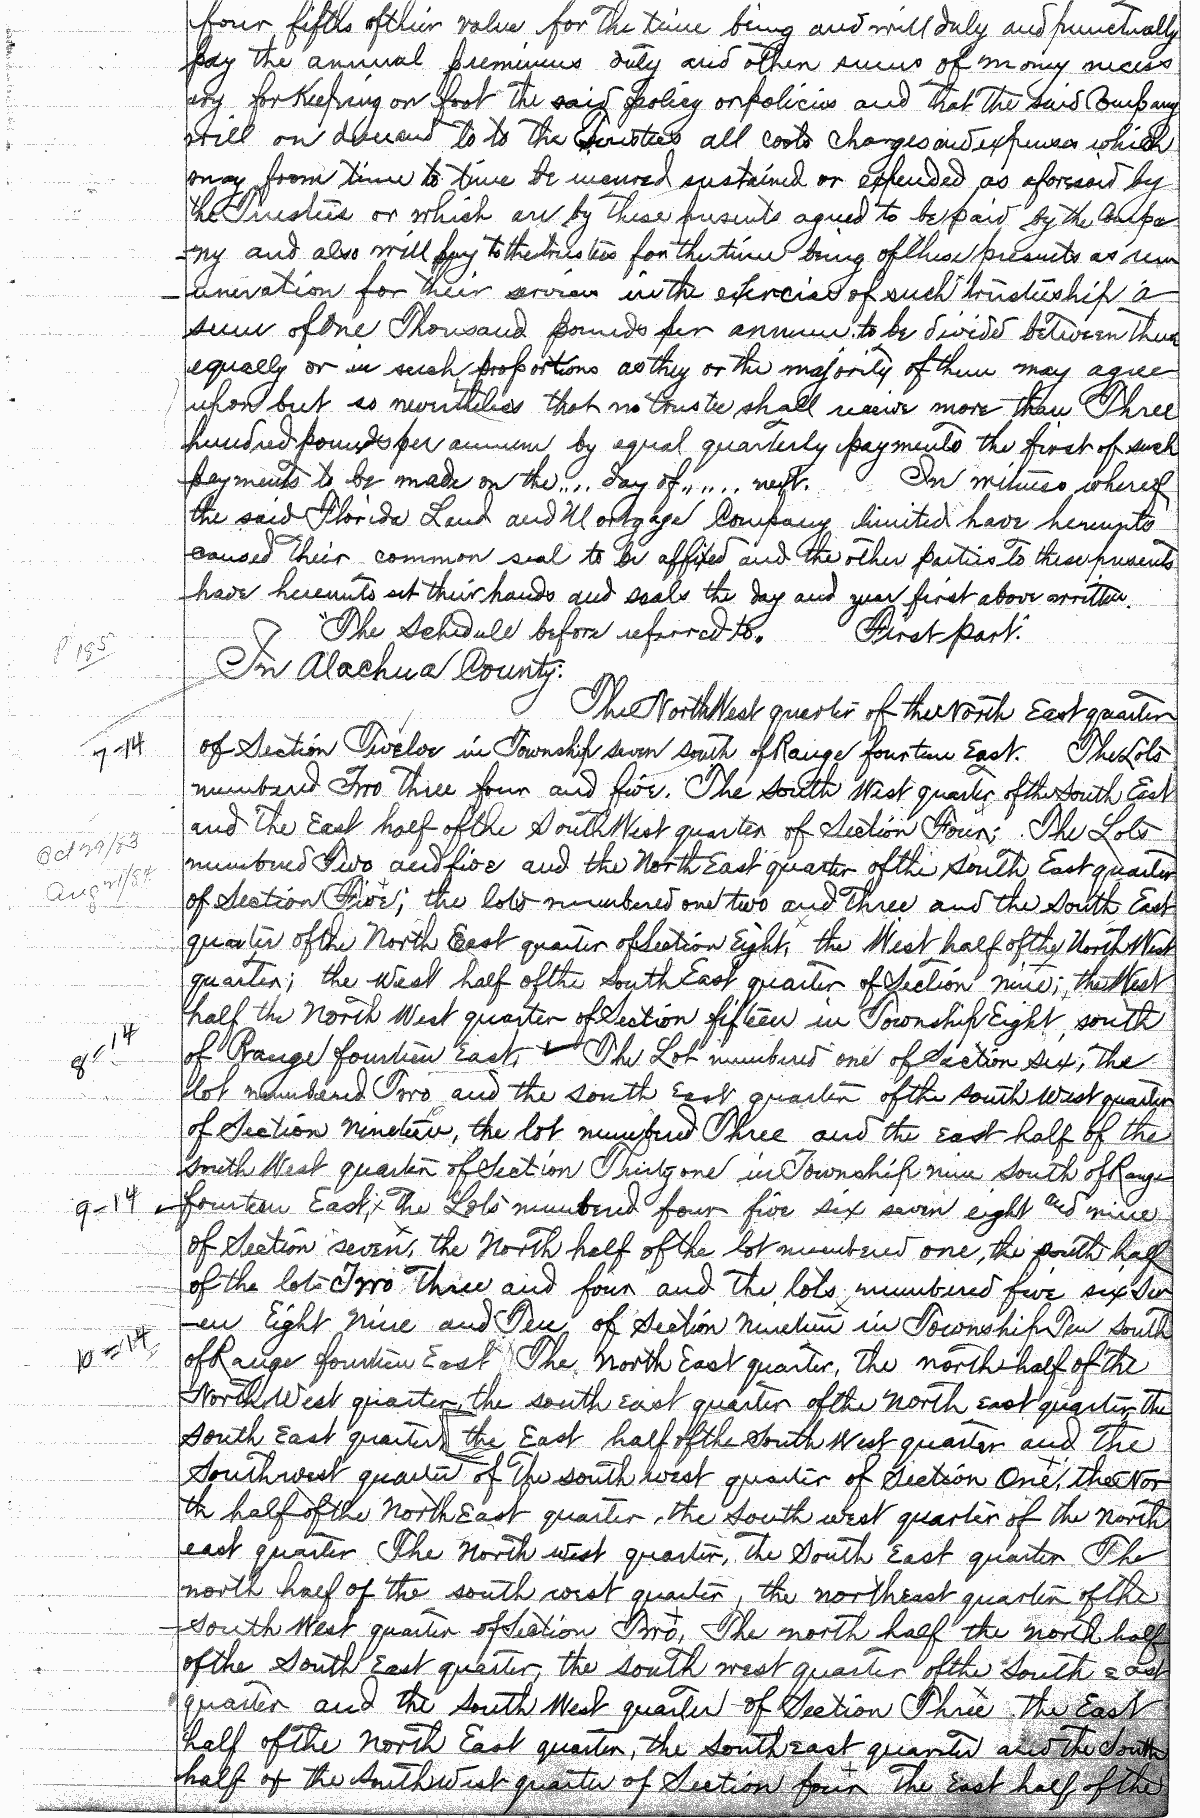 four fifths of their value for the time being and will duly and punctually
pay the annual premiums duty and other sums of money necess
ary for Keeping on foot the said policy or policies and that the said Company
will on demand to to the Trustees all costs charges and expenses which
may from time to time be incured sustained or expended as aforesaid by
the Trustees or which are by these presents agreed to be paid by the Compa
-ny and also will pay to the trustees for the time being of these presents as rem
-uneration for their services in the exercise of such trusteeship a
sum of One Thousand pounds per annum to be divided between them
equally or in such proportions as they or the majority of them may agree
upon but so nevertheless that no trustee shall receive more than Three
hundred pounds per annum by equal quarterly payments the first of such
payments to be made on the .... day of ,, .. . next. In witness whereof
the said Florida Land and Mortgage Company limited have hereunto
caused their common seal to be affixed and the other parties to these presents
have hereunto set their hands and seals the day and year first above written.
"The Schedule before referred to. First part."
P 185
In Alachua County:
The North West quarter of the North East quarter
7-14
of Section Twelve in Township seven south of Range fourteen East. The Lots
numbered Two three four and five. The South West quarter of the South East
and the East half of the South West quarter of Section Four; The Lots
Oct 29/83
numbered Two and five and the North East quarter of the South East quarter
Aug 21/84
of Section Five; the lots numbered one two and three and the South East
quarter of the North East quarter of Section Eight, the West half of the North West
quarter; the west half of the South East quarter of Section nine; the West
half the North West quarter of Section fifteen in Township Eight south
8-14
of Range fourteen East. The Lot numbered one of Section six, the
lot numbered Two and the south east quarter of the south west quarter
of Section nineteen, the lot numbered Three and the east half of the
South West quarter of Section Thirty one in Township nine south of Range
9-14
fourteen East, x the Lots numbered four five six seven eight and nine
of Section seven, the North half of the lot numbered one, the south half
of the lots Two Three and four and the lots numbered five six Sev
-en Eight Nine and Ten of Section nineteen in Township Ten south
10-14
of Range fourteen East The North East quarter, the north half of the
North West quarter, the south east quarter of the North east quarter, the
South East quarter, the East half of the South West quarter and the
Southwest quarter of the south west quarter of Section One, the Nor
th half of the North East quarter, the South west quarter of the North
east quarter The North west quarter, the South East quarter The
north half of the south west quarter, the northeast quarter of the
-South West quarter of Section Two, The north half the north half
of the South East quarter, the south west quarter of the South east
quarter and the South West quarter of Section Three the East
half of the North East quarter, the southeast quarter and the South
half of the Southwest quarter of Section four the East half of the